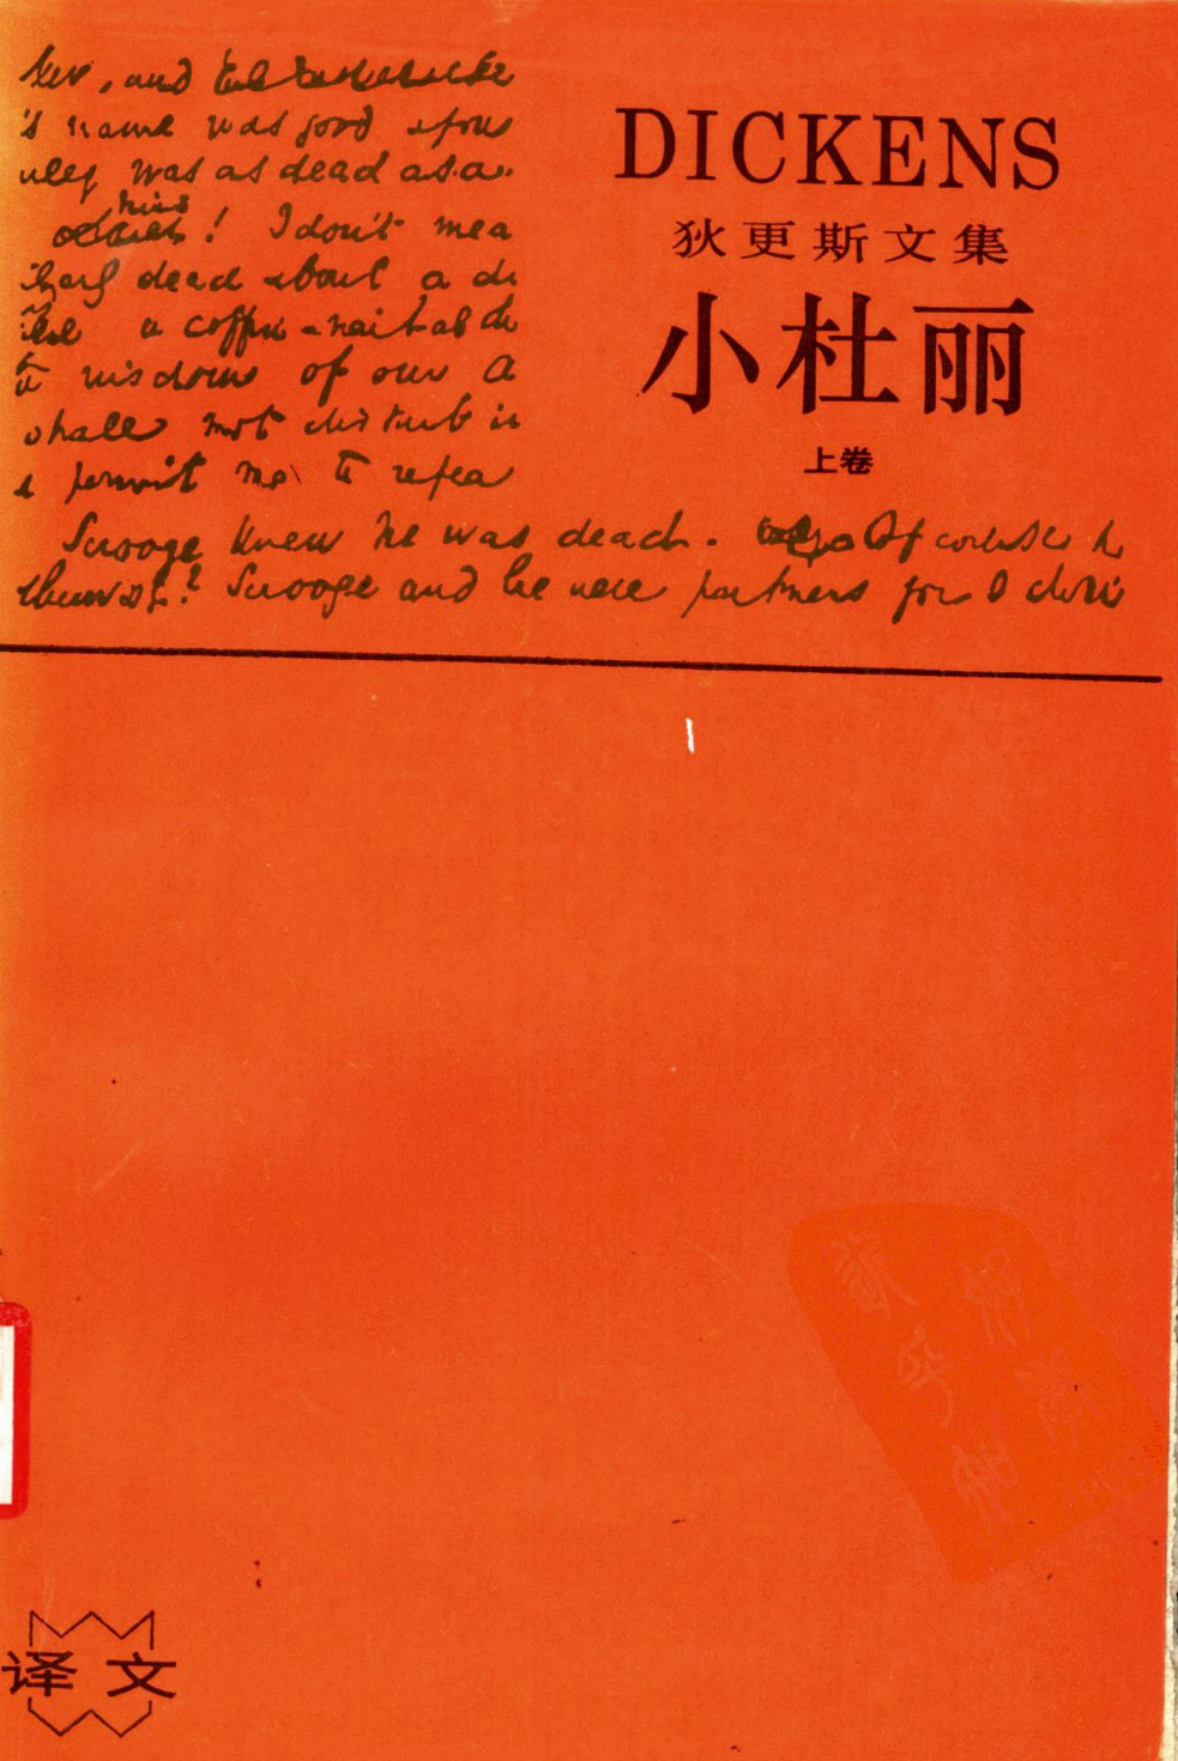 , and
's name was good upon
was as dead as a
his
! I don't mea
dead about a
a coffin-nail as
wisdom of our a
shall not disturb
permit me to repea
Scrooge knew he was dead. Of course h
Scrooge and he were partners for I don't
DICKENS
狄更斯文集
小杜丽
上卷
译文